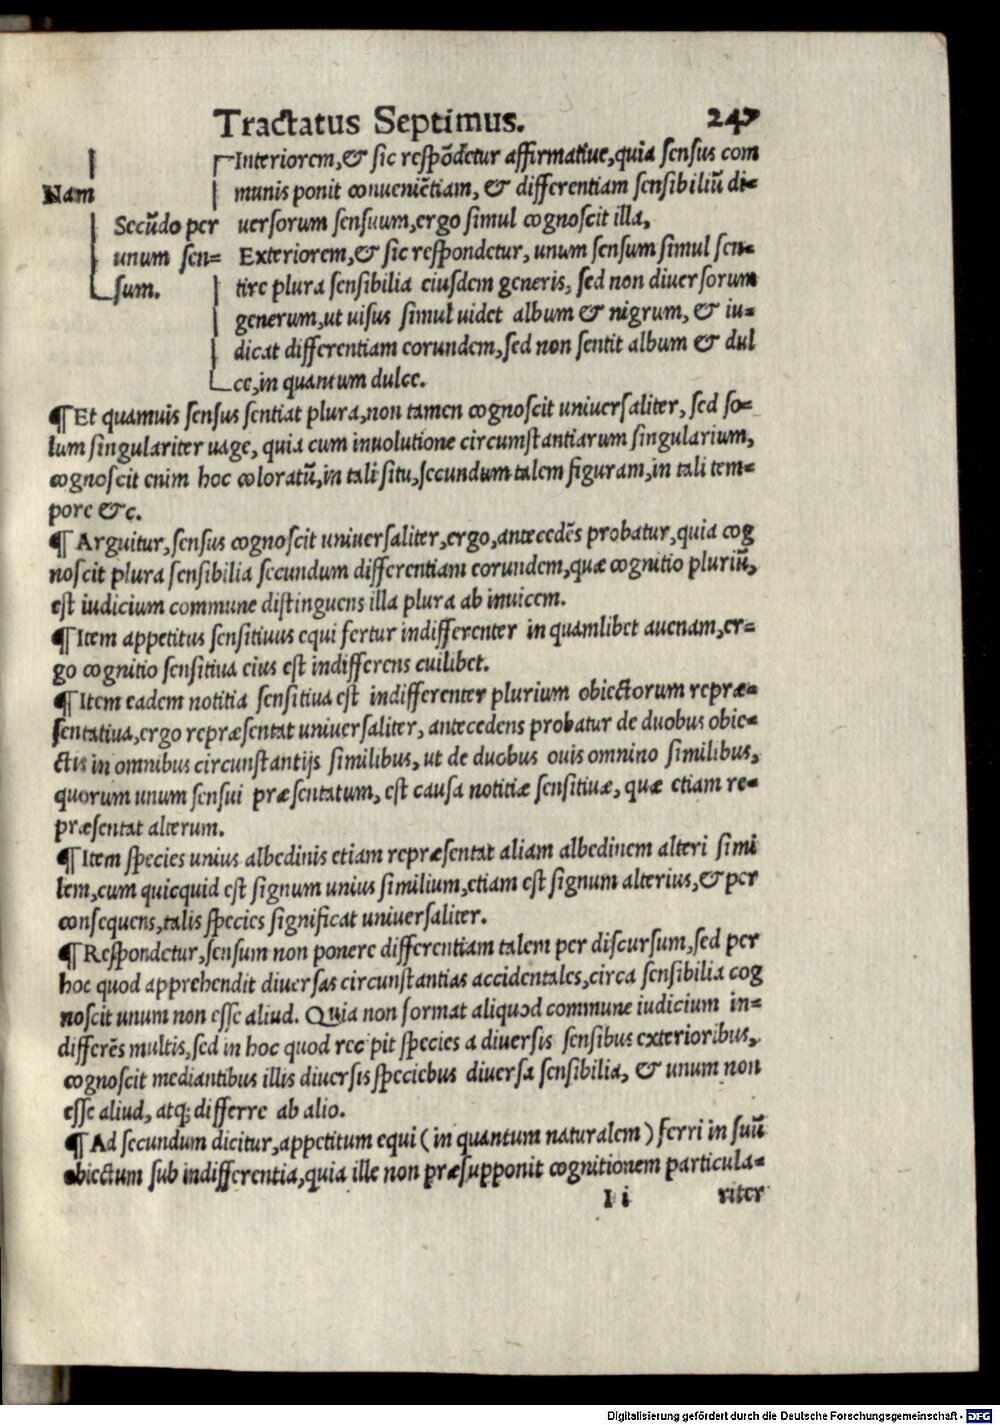 Tractatus Septimus. 247
Nam
Secūdo per
unum sen=
sum.
Interiorem,& sic respōdetur affirmatiue,quia sensus com
munis ponit conueniētiam, & differentiam sensibiliū di=
uersorum sensuum,ergo simul cognoscit illa,
Exteriorem,& sic respondetur, unum sensum simul sen=
tire plura sensibilia eiusdem generis, sed non diuersorum
generum,ut uisus simul uidet album & nigrum, & iu=
dicat differentiam eorundem,sed non sentit album & dul
ce,in quantum dulce.
¶Et quamuis sensus sentiat plura,non tamen cognoscit uniuersaliter, sed so=
lum singulariter uage, quia cum inuolutione circumstantiarum singularium,
cognoscit enim hoc coloratū,in tali situ,secundum talem figuram,in tali tem=
pore &c.
¶ Arguitur,sensus cognoscit uniuersaliter,ergo,antecedēs probatur,quia cog
noscit plura sensibilia secundum differentiam eorundem,quæ cognitio pluriū,
est iudicium commune distinguens illa plura ab inuicem.
¶Item appetitus sensitiuus equi fertur indifferenter in quamlibet auenam,er=
go cognitio sensitiua eius est indifferens cuilibet.
¶Item eadem notitia sensitiua est indifferenter plurium obiectorum repræ=
sentatiua,ergo repræsentat uniuersaliter, antecedens probatur de duobus obie=
ctis in omnibus circunstantijs similibus, ut de duobus ouis omnino similibus,
quorum unum sensui præsentatum, est causa notitiæ sensitiuæ, quæ etiam re=
præsentat alterum.
¶Item species unius albedinis etiam repræsentat aliam albedinem alteri simi
lem,cum quicquid est signum unius similium,etiam est signum alterius,& per
consequens,talis species significat uniuersaliter.
¶Respondetur,sensum non ponere differentiam talem per discursum,sed per
hoc quod apprehendit diuersas circunstantias accidentales,circa sensibilia cog
noscit unum non esse aliud. Quia non format aliquod commune iudicium in=
differēs multis,sed in hoc quod rec pit species a diuersis sensibus exterioribus,
cognoscit mediantibus illis diuersis speciebus diuersa sensibilia, & unum non
esse aliud, atq; differre ab alio.
¶ Ad secundum dicitur,appetitum equi (in quantum naturalem) ferri in suū
obiectum sub indifferentia,quia ille non præsupponit cognitionem particula=
I i riter
Digitalisierung gefördert durch die Deutsche Forschungsgemeinschaft - DFG